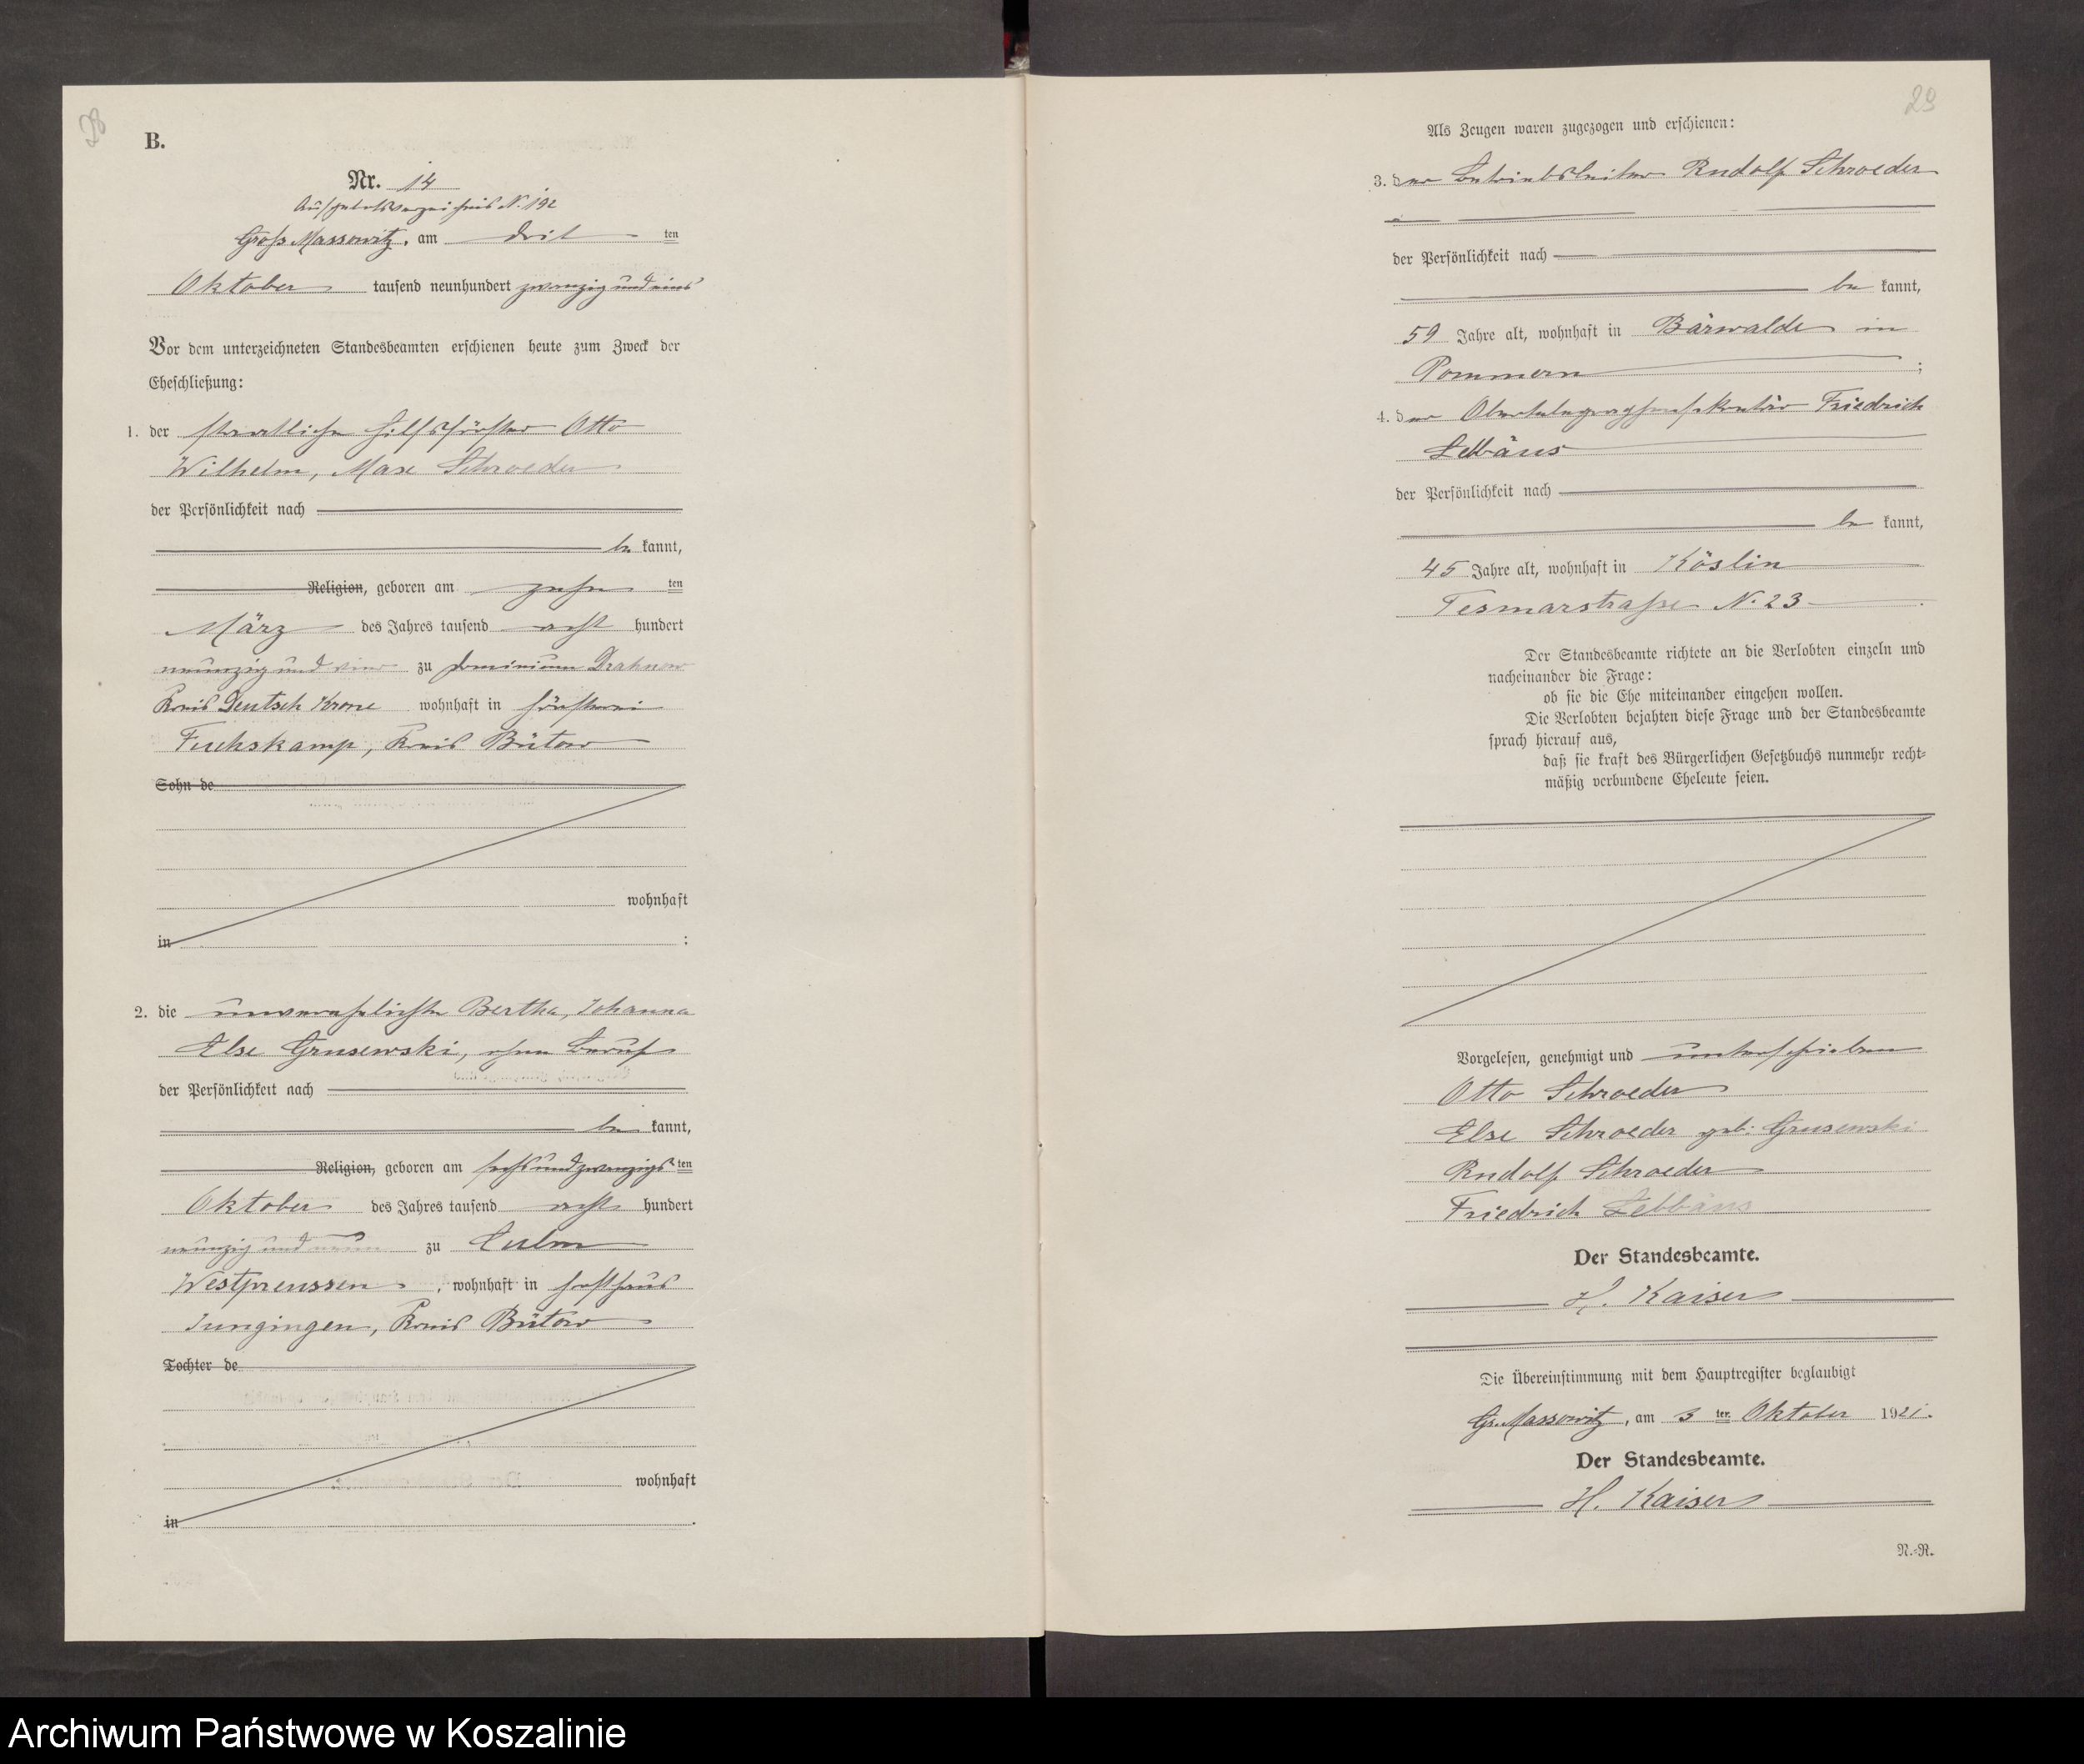 28
B.
Nr. 14
Aufgebotsverzeichnis N. 192
Groß Massowitz, am drit ten
Oktober tausend neunhundert zwanzig und eins
Vor dem unterzeichneten Standesbeamten erschienen heute zum Zweck der
Eheschließung:
1. der staatliche Hilfsförster Otto
Wilhelm, Max Schroeder
der Persönlichkeit nach
be kannt,
Religion, geboren am zehn ten
März des Jahres tausend acht hundert
neunzig und eins zu Dominium Drahnow
Kreis Deutsch Krone wohnhaft in Försterei
Fuchskamp, Kreis Bütow
Sohn de
wohnhaft
in ;
2. die unverehelichte Bertha, Johanna
Else Grusewski, ohne Beruf
der Persönlichkeit nach
be kannt,
Religion, geboren am sechsundzwanzigs ten
Oktober des Jahres tausend acht hundert
neunzig und neun zu Culm
Westpreussen, wohnhaft in Forsthaus
Jungingen, Kreis Bütow
Tochter de
wohnhaft
in .
29
Als Zeugen waren zugezogen und erschienen:
3. der Betriebsleiter Rudolf Schroeder
der Persönlichkeit nach
be kannt,
59 Jahre alt, wohnhaft in Bärwalde in
Pommern ;
4. der Obertelegraphensekretär Friedrich
Lebbäus
der Persönlichkeit nach
be kannt,
45 Jahre alt, wohnhaft in Köslin
Tesmarstraße N. 23 .
Der Standesbeamte richtete an die Verlobten einzeln und
nacheinander die Frage:
ob sie die Ehe miteinander eingehen wollen.
Die Verlobten bejahten diese Frage und der Standesbeamte
sprach hierauf aus,
daß sie kraft des Bürgerlichen Gesetzbuchs nunmehr recht-
mäßig verbundene Eheleute seien.
Vorgelesen, genehmigt und unterschrieben
Otto Schroeder
Else Schroeder geb. Grusewski
Rudolf Schroeder
Friedrich Lebbäus
Der Standesbeamte.
H. Kaiser
Die Übereinstimmung mit dem Hauptregister beglaubigt
Gr. Massowitz, am 3 ten Oktober 1921.
Der Standesbeamte.
H. Kaiser
N.-R.
Archiwum Państwowe w Koszalinie